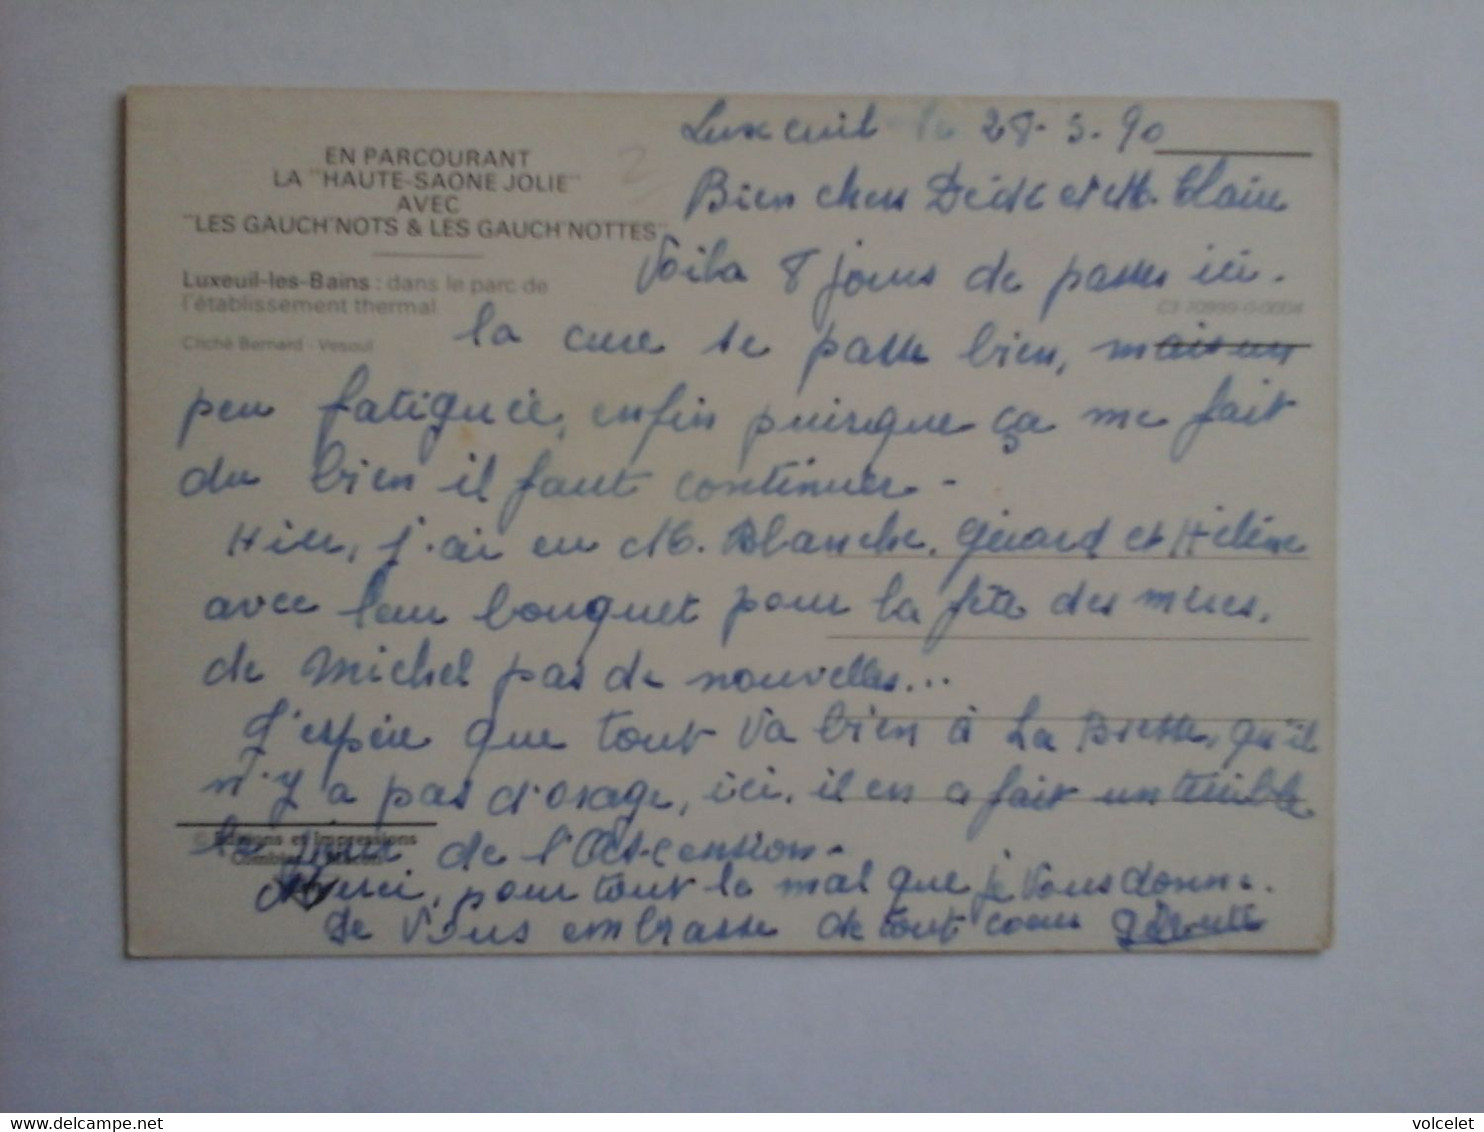 EN PARCOURANT
LA "HAUTE-SAONE JOLIE"
AVEC
"LES GAUCH'NOTS & LES GAUCH'NOTTES"
Luxeuil-les-Bains : dans le parc de
l'établissement thermal
Cliché Bernard - Vesoul
Luxeuil le 28-5-90
Bien chers et M. Claire
Voila 8 jours de passés ici.
la cure se passe bien, mais un
peu fatiguée, enfin puisque ça me fait
du bien il faut continuer -
Hier, j'ai eu M. Blanche, Gérard et Hélène
avec leur bouquet pour la fête des mères.
de Michel pas de nouvelles...
J'espère que tout va bien à La Bresse, qu'il
n'y a pas d'orage, ici, il en a fait un terrible
le jour de l'Ascension -
© Editions et Impressions
Combier
Merci, pour tout le mal que je vous donne.
Je vous embrasse de tout cœur
volcelet